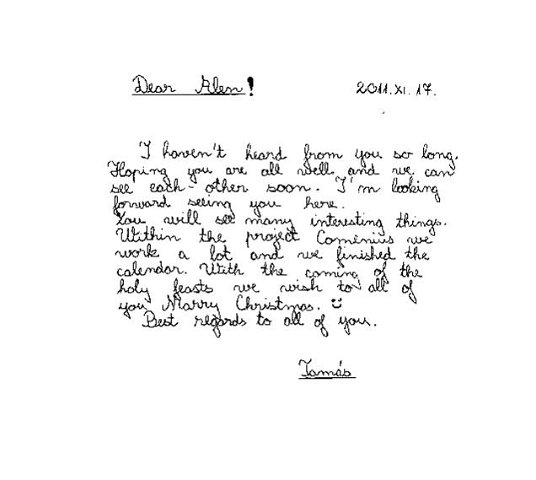 Dear Alen! 2011.XI.17.
I haven't heard from you so long.
Hoping you are all well and we can
see each-other soon. I'm looking
forward seeing you here.
You will see many interesting things.
Within the project Comenius we
work a lot and we finished the
calendar. With the coming of the
holy feasts we wish to all of
you Marry Christmas. :)
Best regards to all of you.
Tamás